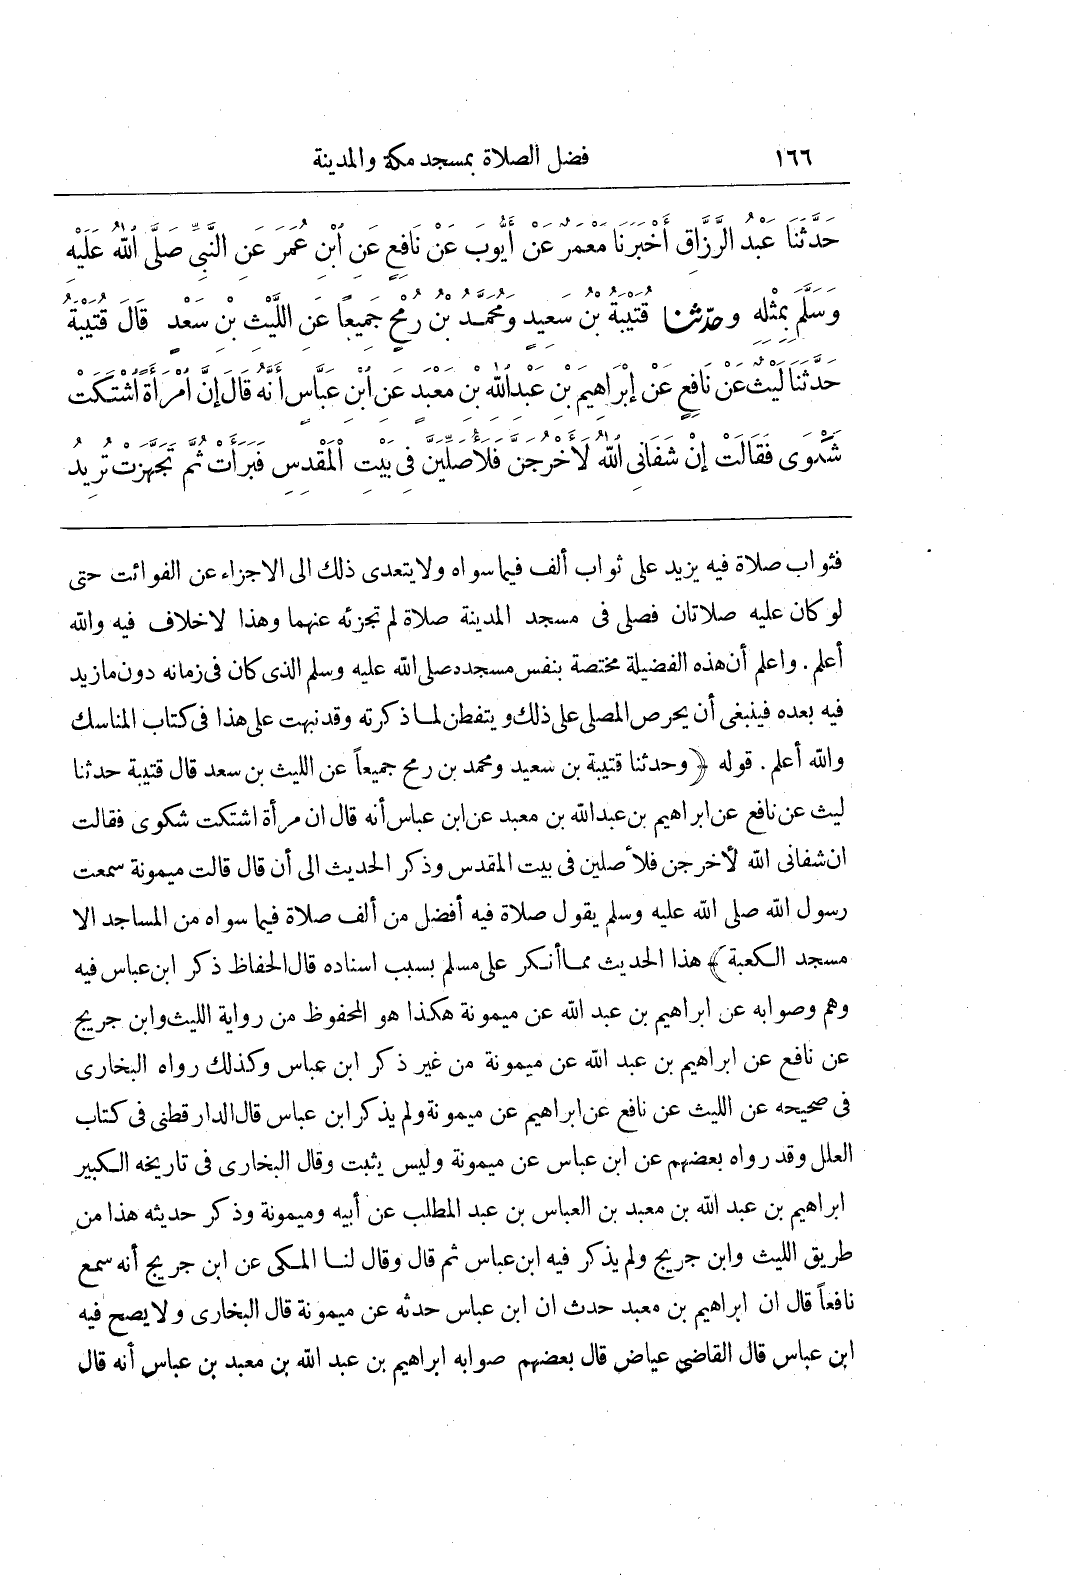 ١٦٦ فضل الصلاة بمسجد مكة والمدينة
حَدَّثَنَا عَبْدُ الرَّزَّاقِ أَخْبَرَنَا مَعْمَرٌ عَنْ أَيُّوبَ عَنْ نَافِعٍ عَنِ ابْنِ عُمَرَ عَنِ النَّبِيِّ صَلَّى اللهُ عَلَيْهِ
وَسَلَّمَ بِمِثْلِهِ وحدّثنا قُتَيْبَةُ بْنُ سَعِيدٍ وَمُحَمَّدُ بْنُ رُمْحٍ جَمِيعًا عَنِ اللَّيْثِ بْنِ سَعْدٍ قَالَ قُتَيْبَةُ
حَدَّثَنَا لَيْثٌ عَنْ نَافِعٍ عَنْ إِبْرَاهِيمَ بْنِ عَبْدِ اللهِ بْنِ مَعْبَدٍ عَنِ ابْنِ عَبَّاسٍ أَنَّهُ قَالَ إِنَّ امْرَأَةً اشْتَكَتْ
شَكْوَى فَقَالَتْ إِنْ شَفَانِى اللهُ لَأَخْرُجَنَّ فَلَأُصَلِّيَنَّ فِى بَيْتِ الْمَقْدِسِ فَبَرَأَتْ ثُمَّ تَجَهَّزَتْ تُرِيدُ
فثواب صلاة فيه يزيد على ثواب ألف فيما سواه ولا يتعدى ذلك الى الاجزاء عن الفوائت حتى
لو كان عليه صلاتان فصلى فى مسجد المدينة صلاة لم تجزئه عنهما وهذا لاخلاف فيه والله
أعلم. واعلم أن هذه الفضيلة مختصة بنفس مسجده صلى الله عليه وسلم الذى كان فى زمانه دون مازيد
فيه بعده فينبغى أن يحرص المصلى على ذلك ويتفطن لما ذكرته وقد نبهت على هذا فى كتاب المناسك
والله أعلم. قوله ﴿وحدثنا قتيبة بن سعيد ومحمد بن رمح جميعاً عن الليث بن سعد قال قتيبة حدثنا
ليث عن نافع عن ابراهيم بن عبد الله بن معبد عن ابن عباس أنه قال ان مرأة اشتكت شكوى فقالت
ان شفانى الله لأخرجن فلأصلين فى بيت المقدس وذكر الحديث الى أن قال قالت ميمونة سمعت
رسول الله صلى الله عليه وسلم يقول صلاة فيه أفضل من ألف صلاة فيما سواه من المساجد الا
مسجد الكعبة﴾ هذا الحديث مما أنكر على مسلم بسبب اسناده قال الحفاظ ذكر ابن عباس فيه
وهم وصوابه عن ابراهيم بن عبد الله عن ميمونة هكذا هو المحفوظ من رواية الليث وابن جريج
عن نافع عن ابراهيم بن عبد الله عن ميمونة من غير ذكر ابن عباس وكذلك رواه البخارى
فى صحيحه عن الليث عن نافع عن ابراهيم عن ميمونة ولم يذكر ابن عباس قال الدار قطنى فى كتاب
العلل وقد رواه بعضهم عن ابن عباس عن ميمونة وليس يثبت وقال البخارى فى تاريخه الكبير
ابراهيم بن عبد الله بن معبد بن العباس بن عبد المطلب عن أبيه وميمونة وذكر حديثه هذا من
طريق الليث وابن جريج ولم يذكر فيه ابن عباس ثم قال وقال لنا المكى عن ابن جريج أنه سمع
نافعاً قال ان ابراهيم بن معبد حدث ان ابن عباس حدثه عن ميمونة قال البخارى ولا يصح فيه
ابن عباس قال القاضى عياض قال بعضهم صوابه ابراهيم بن عبد الله بن معبد بن عباس أنه قال